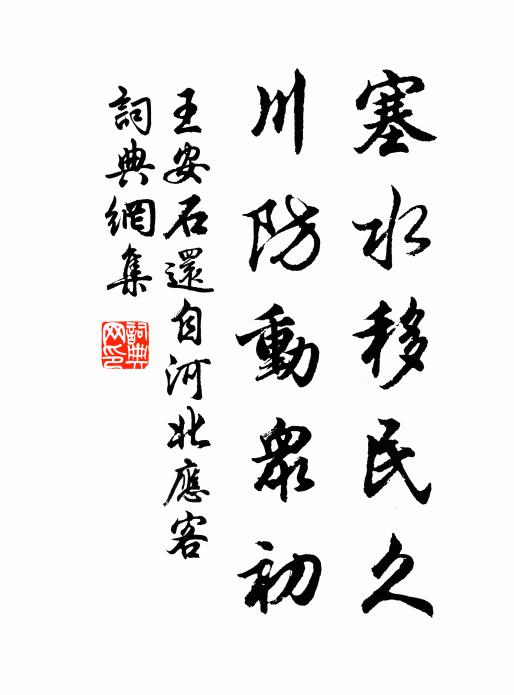 塞水移民久
川防動衆初
王安石還自河北應客
詞典網集
詞典網印